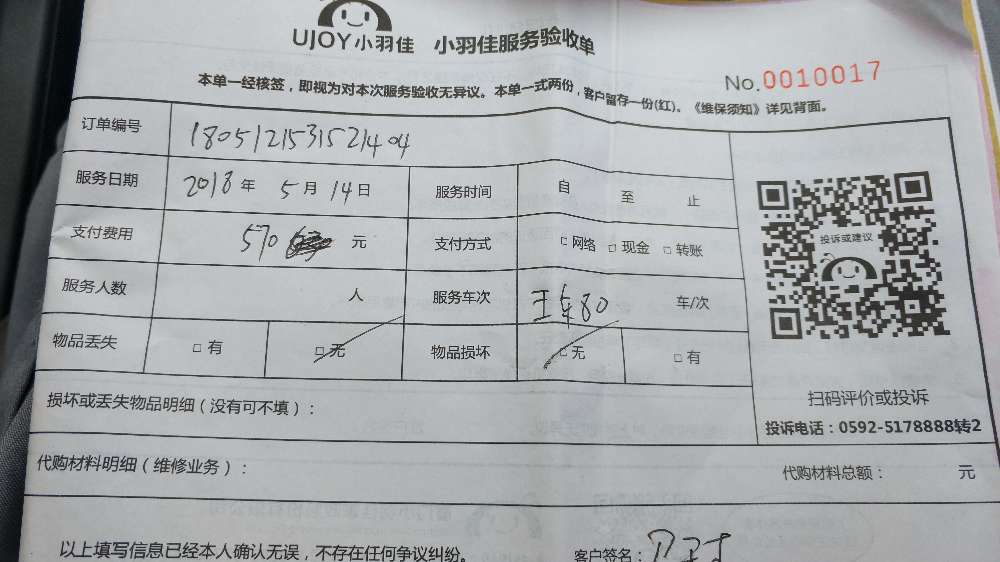 UJOY小羽佳 小羽佳服务验收单
No.0010017
本单一经核签，即视为对本次服务验收无异议。本单一式两份，客户留存一份(红)。《维保须知》详见背面。
订单编号 1805121531521404
服务日期 2018年 5月14日 服务时间 自 至 止
支付费用 570 元 支付方式 □网络 □现金 □转账
投诉或建议
服务人数 人 服务车次 王车80 车/次
物品丢失 □有 □无 物品损坏 □无 □有
扫码评价或投诉
损坏或丢失物品明细（没有可不填）：
投诉电话：0592-5178888转2
代购材料明细（维修业务）： 代购材料总额： 元
以上填写信息已经本人确认无误，不存在任何争议纠纷。 客户签名：